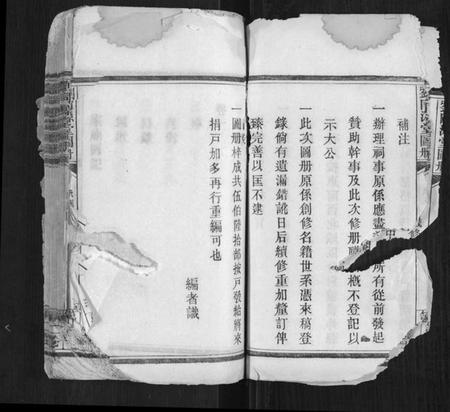 補注
一辦理祠事原係應盡
所有從前發起
贊助幹事及此次修册
概不登記以
示大公
一此次圖册原係創修名籍世系憑來稿登
錄倘有遺漏錯訛日后續修重加釐訂俾
臻完善以匡不逮
一圖册梓成共伍伯陸拾部按戶發給將來
捐戶加多再行重編可也
編者識